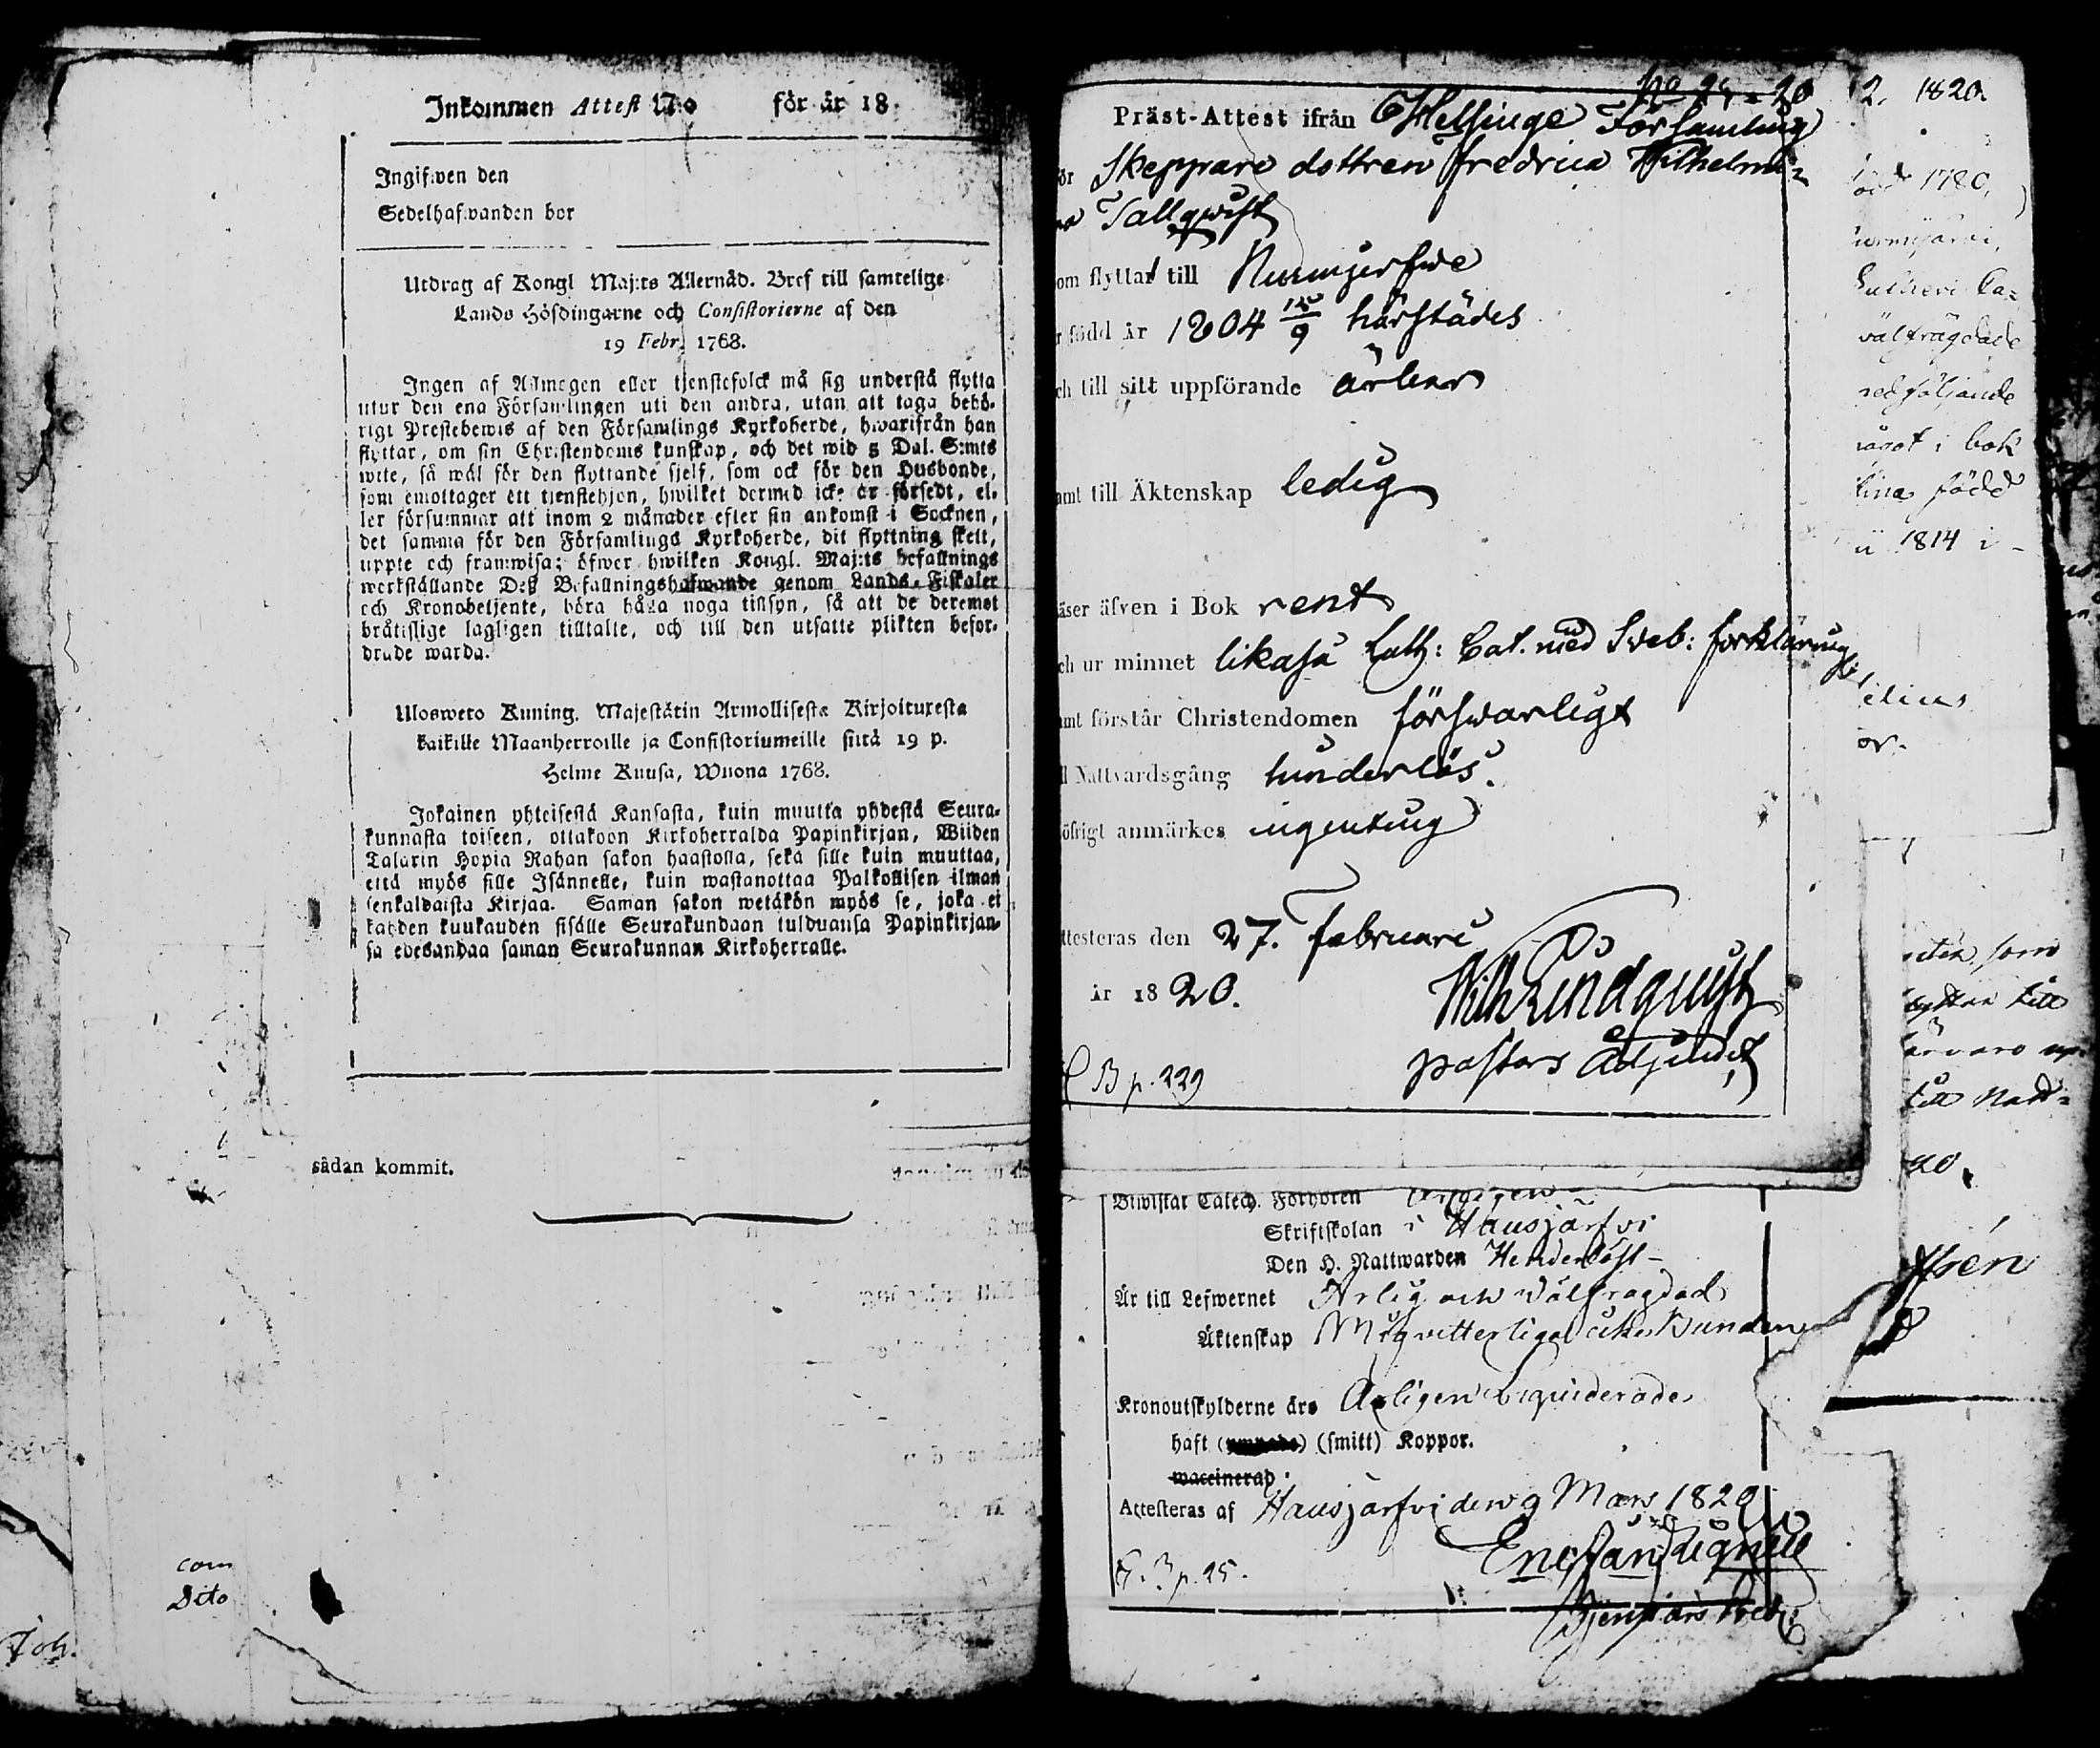 Inkommen Attest N:o för år 18
Ingifwen den
Sedelhafwanden bor
Utdrag af Kongl Maj:ts Allernåd. Bref till samtelige
Lands Höfdingarne och Consistorierne af den
19 Febr. 1768.
Ingen af Allmogen eller tjenstefolck må sig understå flytta
utur den ena Församlingen uti den andra, utan att taga behö-
rigt Prestebewis af den Församlings Kyrkoherde, hwarifrån han
flyttar, om sin Christendoms kunskap, och det wid 5 Dal. S:mts
wite, så wäl för den flyttande sjelf, som ock för den Husbonde,
som emottager ett tjenstehjon, hwilket dermed icke är försedt, el-
ler försummar att inom 2 månader efter sin ankomst i Socknen,
det samma för den Församlings Kyrkoherde, dit flyttning skett,
uppte och framwisa; öfwer hwilken Kongl. Maj:ts befallnings
werkställande Deß Befallningshafwande genom Lands-Fiskaler
och Kronobetjente, böra hålla noga tillsyn, så att de deremot
bråtislige lagligen tilltalte, och till den utsatte plikten befor-
drade warda.
Ulosweto Kuning. Majestätin Armollisesta Kirjoituxesta
kaikille Maanherroille ja Consistoriumeille siitä 19 p.
Helme Kuusa, Wuona 1768.
Jokainen yhteisestä Kansasta, kuin muutta yhdestä Seura-
kunnasta toiseen, ottakoon Kirkoherralda Papinkirjan, Wiiden
Talarin Hopia Rahan sakon haastolla, sekä sille kuin muuttaa,
että myös sille Isännelle, kuin wastanottaa Palkollisen ilman
senkaldaista Kirjaa. Saman sakon wetäkön myös se, joka ei
kahden kuukauden sisälle Seurakundaan tulduansa Papinkirjan-
sa edesandaa saman Seurakunnan Kirkoherralle.
sådan kommit.
com
Dito
Joh.
No 25 - 20
Präst-Attest ifrån Helsinge Församling
ör Skeppare dottren Fredrica Wilhelmi-
na Tallqwist
om flyttar till Nurmijerfwe
r född år 1804 12/9 härstädes
ch till sitt uppförande ärbar
amt till Äktenskap ledig
äser äfven i Bok rent
ch ur minnet likaså Luth: Cat. med Sveb: förklaring
amt förstår Christendomen försvarligt
ll Nattvardsgång hinderlös.
öfrigt anmärkes ingenting
ttesteras den 27. Februari
år 1820.
Wilh Lindquist
pastors Adjunct
C B p. 229
Biwistat Catech. Förhören
Skriftskolan i Hausjärfvi
Den H. Nattwarden Hinderlöst -
Är till Lefwernet Ärlig och Välfrägdad
Äktenskap
Kronoutskylderne äro Årligen Liquiderade
haft (smitt) Koppor.
waccinerad
Attesteras af Hausjärfvi den 9 Mars 1820
C. B p. 25.
2. 1820.
1780,
urmijärvi,
Lutheri Ca-
välfrägdade
nedföljande
något i bok
lina född
1814 i -
elius
or.
som
till
till Natt-
20.